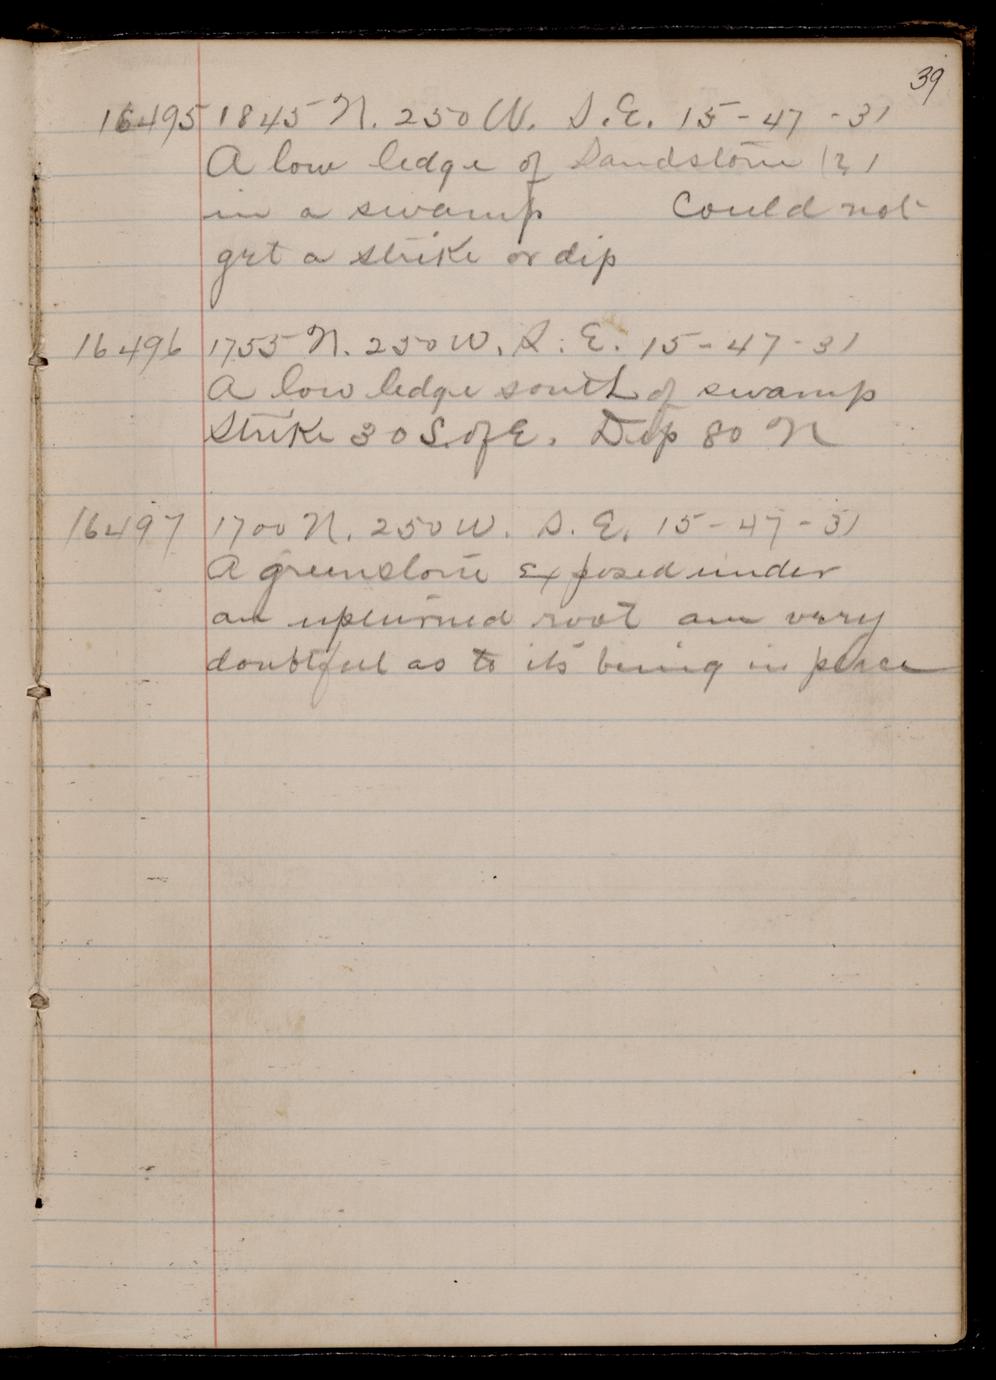 39
16495 1845 N. 250 W. S.E. 15-47-31
A low ledge of Sandstone (?)
in a swamp Could not
get a strike or dip
16496 1755 N. 250 W. S.E. 15-47-31
A low ledge south of swamp
Strike 30 S. of E. Dip 80 N
16497 1700 N. 250 W. S.E. 15-47-31
A greenstone exposed under
an upturned root am very
doubtful as to its being in place